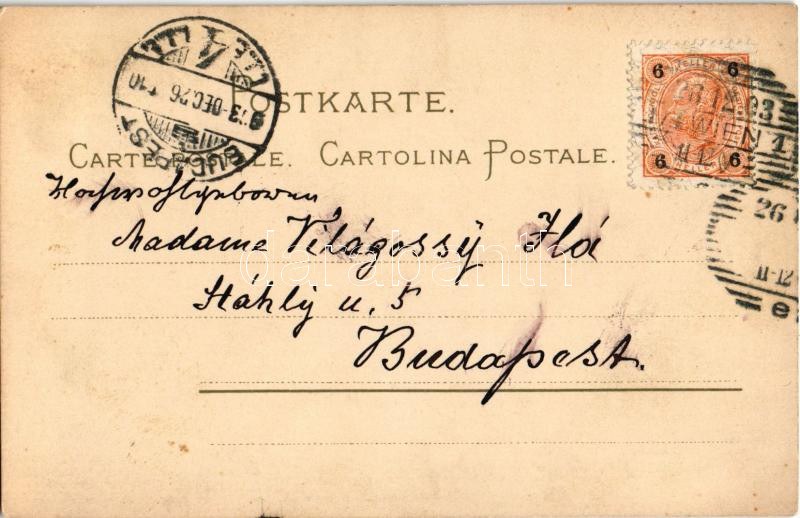 POSTKARTE.
CARTE POSTALE. CARTOLINA POSTALE.
Hochwohlgeboren
Madame Világossÿ Ilá
Stáhlÿ u. 5
Budapest.
6 6
6 6
WIEN 1
26
11-12
BUDAPEST
903 DEC. 26
darabanth